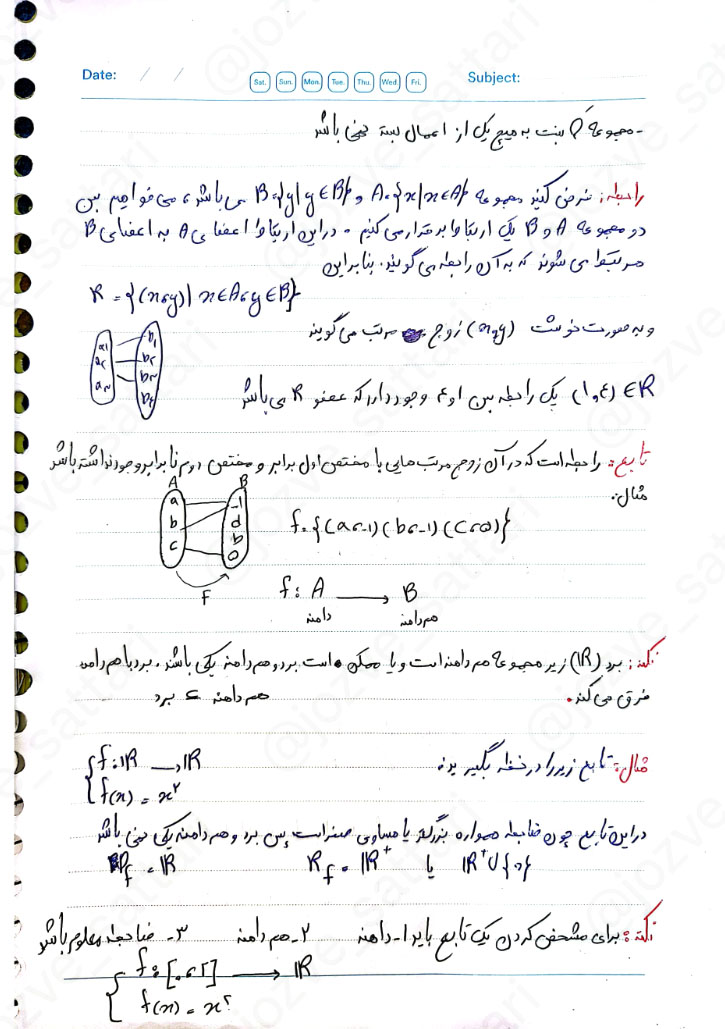 Date: / / Sat. Sun. Mon. Tue. Thu. Wed Fri. Subject:
- مجموعه Q́ نسبت به هیچ یک از اعمال بسته نمی باشد
رابطه: فرض کنید مجموعه A={x|x∈A} و B={y|y∈B} می باشد، می خواهیم بین
دو مجموعه A و B یک ارتباط برقرار می کنیم. در این ارتباط اعضای A به اعضای B
مرتبط می شوند که به آن رابطه می گویند. بنابراین
R = {(x,y)| x∈A, y∈B}
و به صورت نوشت (x,y) زوج مرتب می گویند
a۱ a۲ a۳
b۱ b۲ b۳ b۴
(۱,۴) ∈R یک رابطه بین ۱ و ۴ وجود دارد که عضو R می باشد
تابع: رابطه است که در آن زوج مرتب هایی با مختص اول برابر و مختص دوم نابرابر وجود نداشته باشد
مثال:
A B
a b c
-1 d b 0
f={(a,-1)(b,-1)(c,0)}
F
f: A → B
دامنه هم دامنه
نکته: برد (R) زیر مجموعه هم دامنه است و یا ممکن است برد و هم دامنه یکی باشند. برد با هم دامنه
فرق می کند. برد ⊆ هم دامنه
مثال: تابع زیر را در نظر بگیرید.
f: ℝ → ℝ
f(x) = x²
در این تابع چون ضابطه همواره بزرگتر یا مساوی صفر است پس برد و هم دامنه یکی نمی باشد
D_f = ℝ R_f = ℝ⁺ یا ℝ⁺∪{۰}
نکته: برای مشخص کردن یک تابع باید ۱- دامنه ۲- هم دامنه ۳- ضابطه معلوم باشد
f: [۰,۲] → ℝ
f(x) = x²
@jozve_sattari